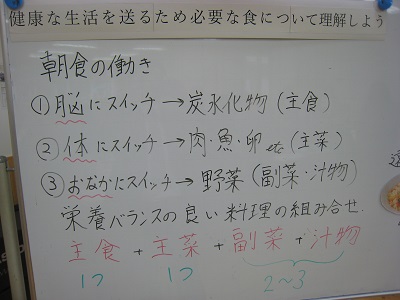 健康な生活を送るため必要な食について理解しよう
朝食の働き
①脳にスイッチ→炭水化物(主食)
②体にスイッチ→肉・魚・卵etc(主菜)
③おなかにスイッチ→野菜(副菜・汁物)
栄養バランスの良い料理の組み合せ.
主食+主菜+副菜+汁物
1つ 1つ 2~3